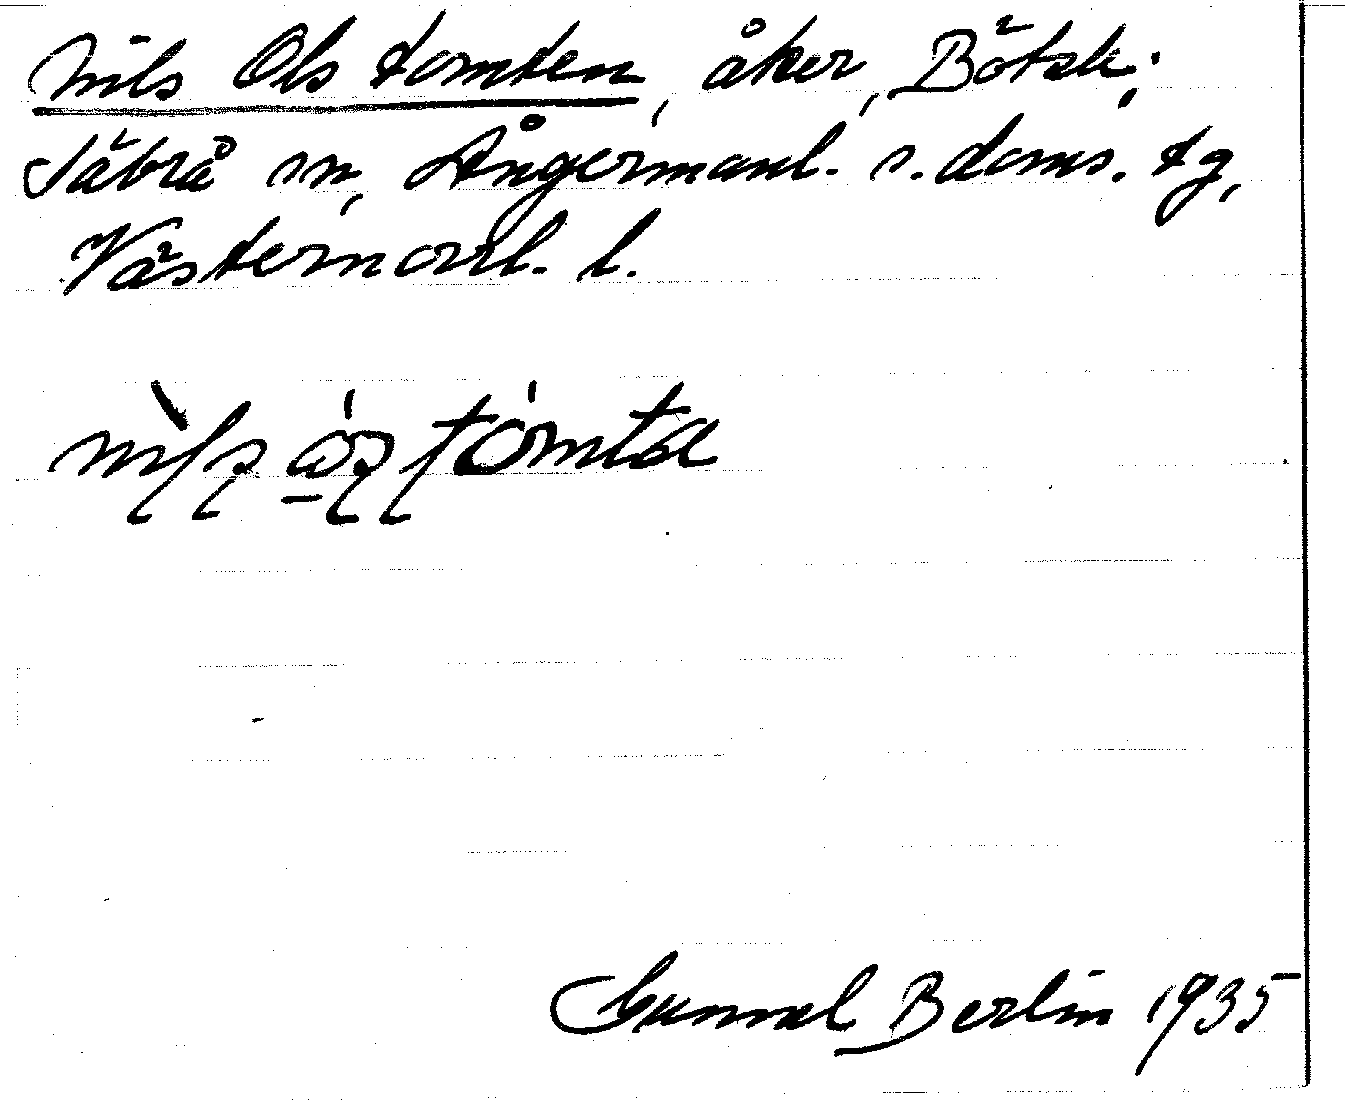 Nils Ols tomten, åker, Bölsk;
Säbrå sn, Ångermanl. s. doms. tg,
Västernorrl. l.
Gunnel Berlin 1935